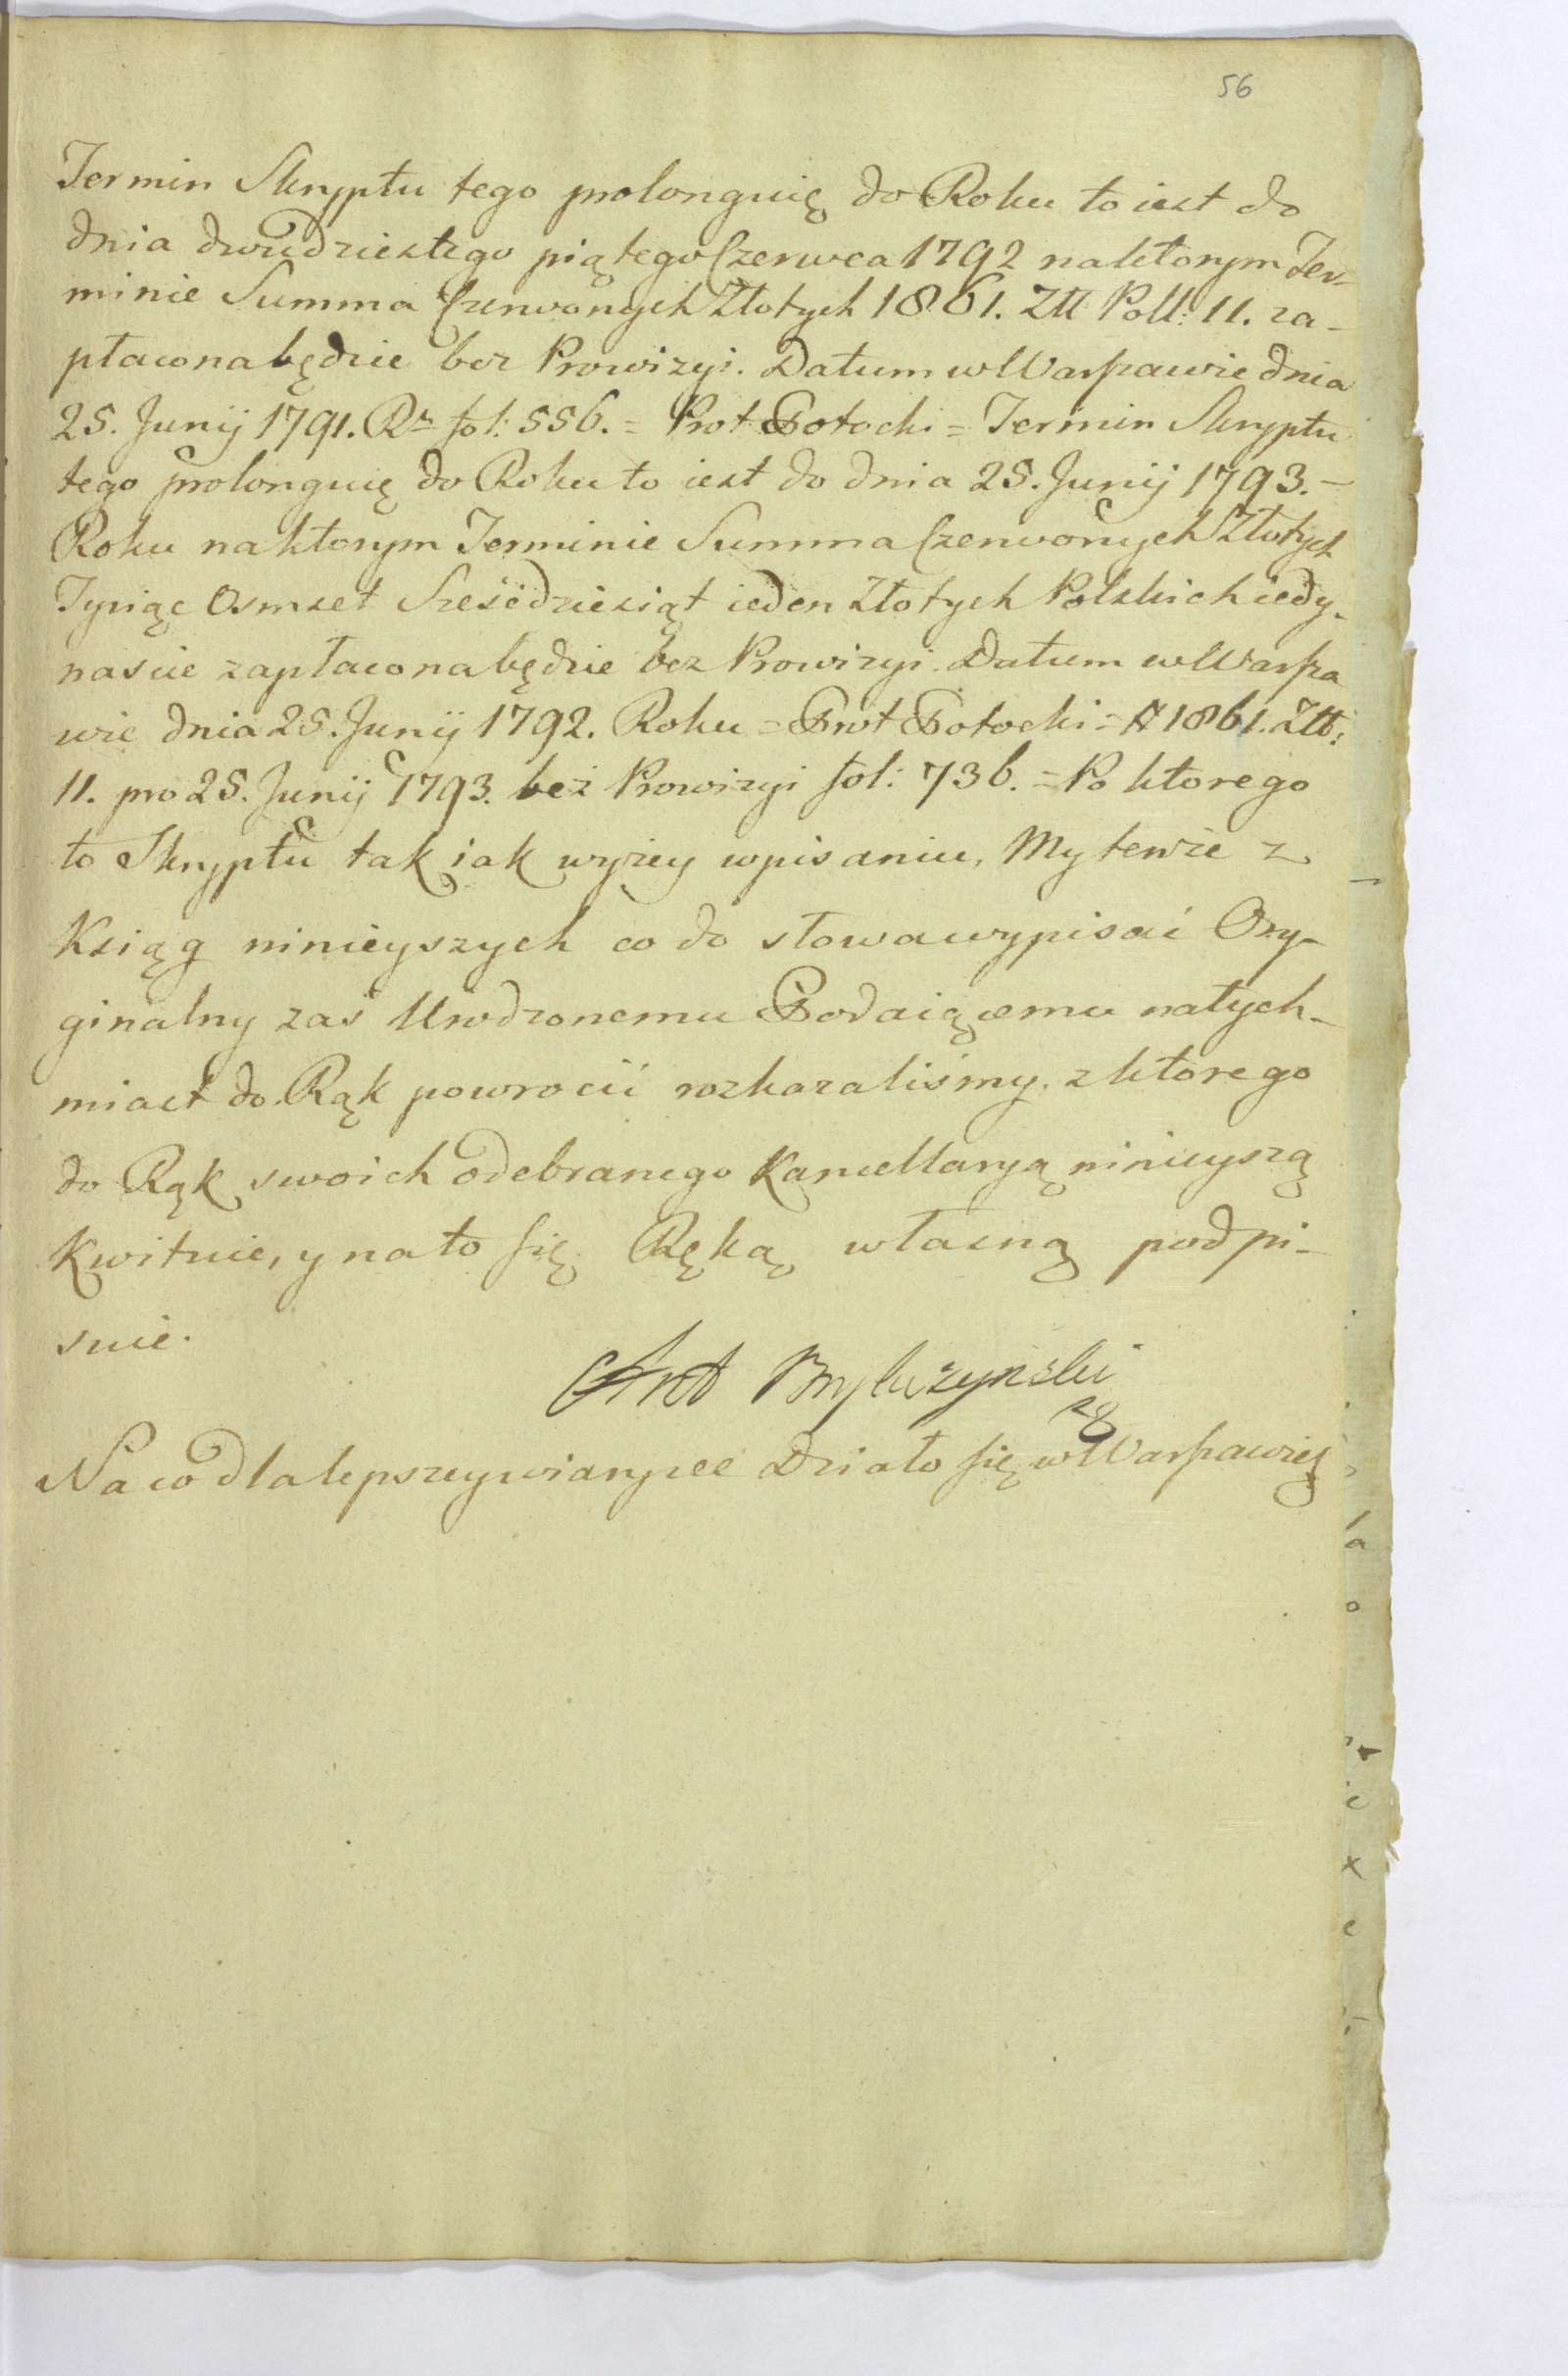 56
Termin Skryptu tego prolonguię do Roku to iest do
dnia dwudziestego piątego Czerwca 1792 na ktorym Ter-
minie Summa Czerwonych Złotych 1861. Złł Poll: 11. za-
płacona będzie bez Prowizyi. Datum w Warszawie dnia
25. Junij 1791. Rº fol: 556. = Prot Potocki = Termin Skryptu
tego prolonguię do Roku to iest do dnia 25. Junij 1793. -
Roku na ktorym Terminie Summa Czerwonych Złotych
Tysiąc Osmset Sześćdziesiąt ieden Złotych Polskich iedy-
nascie zapłacona będzie bez Prowizyi. Datum w Warsza
wie dnia 25. Junij 1792. Roku = Prot Potocki = # 1861. Złł:
11. pro 25. Junij 1793. bez Prowizyi fol: 736. = Po ktorego
to Skryptu tak iak wyżey wpisaniu, My tenże z
Ksiąg ninieyszych co do słowa wypisać Ory-
ginalny zaś Urodzonemu Podaiącemu natych-
miast do Rąk powrocić rozkazaliśmy. z ktorego
do Rąk swoich odebranego Kancellaryą ninieyszą
Kwituie, y na to się Ręką własną podpi-
suie.
Ant Brylczynski
Na co dla lepszey wiary ree Działo się w Warszawie